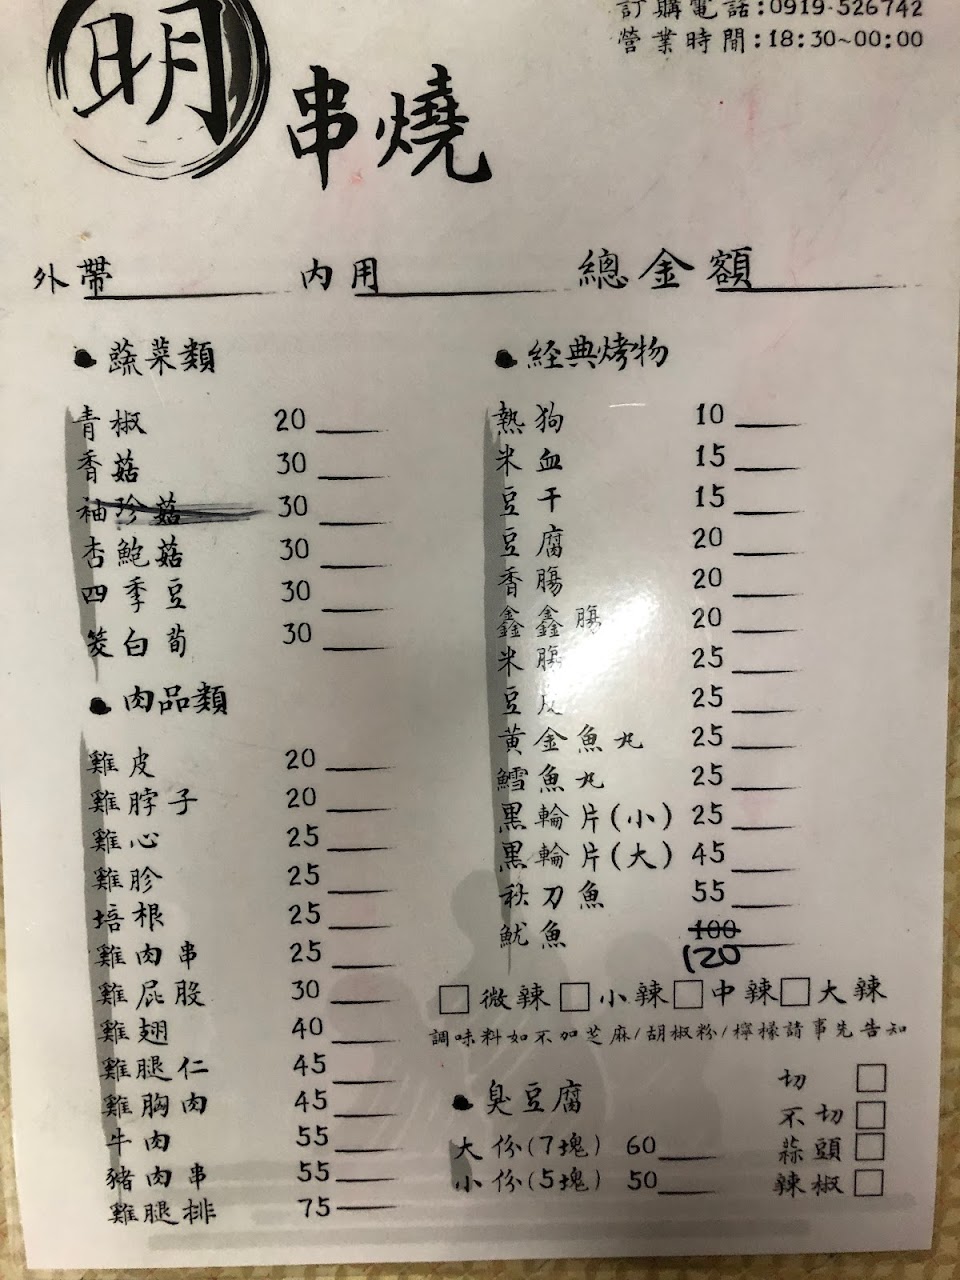 訂購電話:0919-526742
營業時間:18:30~00:00
明
串燒
外帶 內用 總金額
蔬菜類
青椒 20
香菇 30
袖珍菇 30
杏鮑菇 30
四季豆 30
筊白荀 30
肉品類
雞皮 20
雞脖子 20
雞心 25
雞胗 25
培根 25
雞肉串 25
雞屁股 30
雞翅 40
雞腿仁 45
雞胸肉 45
牛肉 55
豬肉串 55
雞腿排 75
經典烤物
熱狗 10
米血 15
豆干 15
豆腐 20
香腸 20
鑫鑫腸 20
米腸 25
豆皮 25
黃金魚丸 25
鱈魚丸 25
黑輪片(小) 25
黑輪片(大) 45
秋刀魚 55
魷魚 100
120
微辣 小辣 中辣 大辣
調味料如不加芝麻/胡椒粉/檸檬請事先告知
臭豆腐
大份(7塊) 60
小份(5塊) 50
切
不切
蒜頭
辣椒